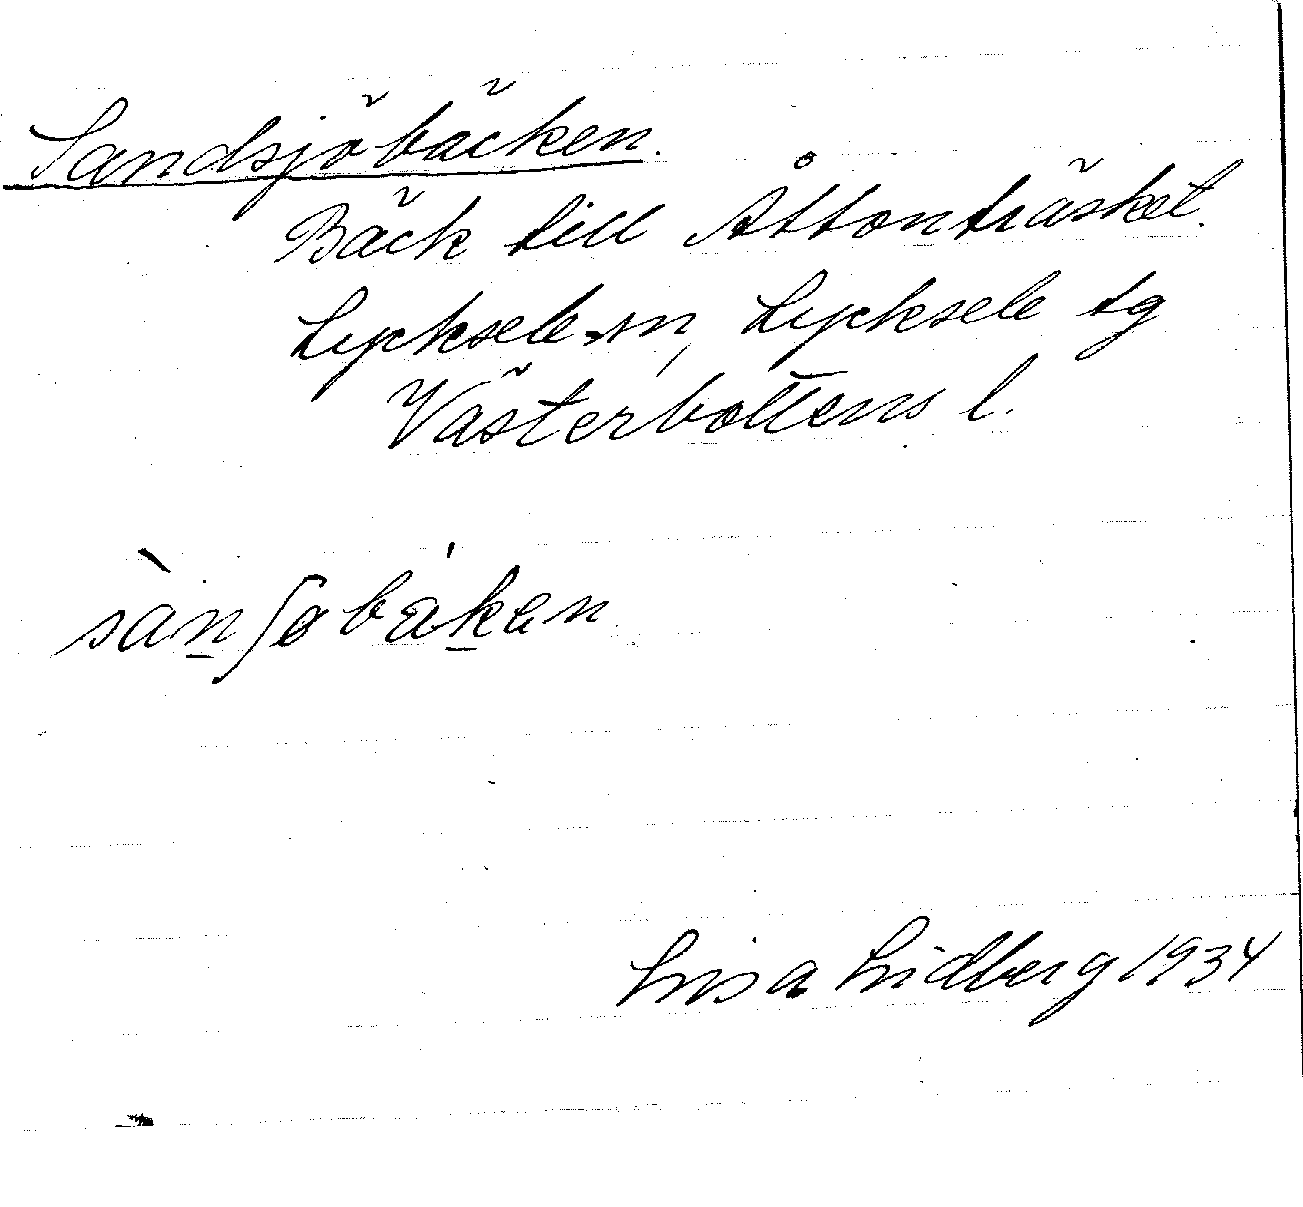 Sandsjöbäcken.
Bäck till Åttonträsket.
Lycksele sn, Lycksele tg
Västerbottens l.
sànʃobákan
Lisa Lidberg 1934